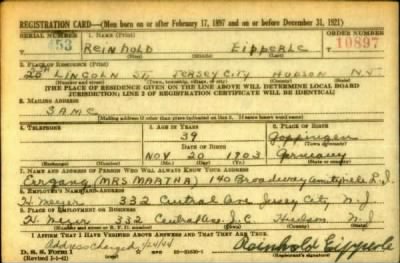 REGISTRATION CARD—(Men born on or after February 17, 1897 and on or before December 31, 1921)
SERIAL NUMBER 1. NAME (Print) ORDER NUMBER
453 REINHOLD EIPPERLE 10897
(First) (Middle) (Last)
2. PLACE OF RESIDENCE (Print)
25 LINCOLN ST. JERSEY CITY HUDSON N.J.
(Number and street) (Town, township, village, or city) (County) (State)
[THE PLACE OF RESIDENCE GIVEN ON THE LINE ABOVE WILL DETERMINE LOCAL BOARD
JURISDICTION; LINE 2 OF REGISTRATION CERTIFICATE WILL BE IDENTICAL]
3. MAILING ADDRESS
SAME
[Mailing address if other than place indicated on line 2. If same insert word same]
4. TELEPHONE 5. AGE IN YEARS 6. PLACE OF BIRTH
39 Goppingen
DATE OF BIRTH (Town or county)
NOV 20 1903 Germany
(Exchange) (Number) (Mo.) (Day) (Yr.) (State or country)
7. NAME AND ADDRESS OF PERSON WHO WILL ALWAYS KNOW YOUR ADDRESS
(MRS MARTHA) 140 Broadway Amityville L.I.
8. EMPLOYER'S NAME AND ADDRESS
H. Meyer 332 Central Ave Jersey City N.J.
9. PLACE OF EMPLOYMENT OR BUSINESS
H. Meyer 332 Central Ave J.C. Hudson N.J.
(Number and street or R. F. D. number) (Town) (County) (State)
I AFFIRM THAT I HAVE VERIFIED ABOVE ANSWERS AND THAT THEY ARE TRUE.
Address changed
D. S. S. Form 1
(Revised 1-1-42) (over) Reinhold Eipperle